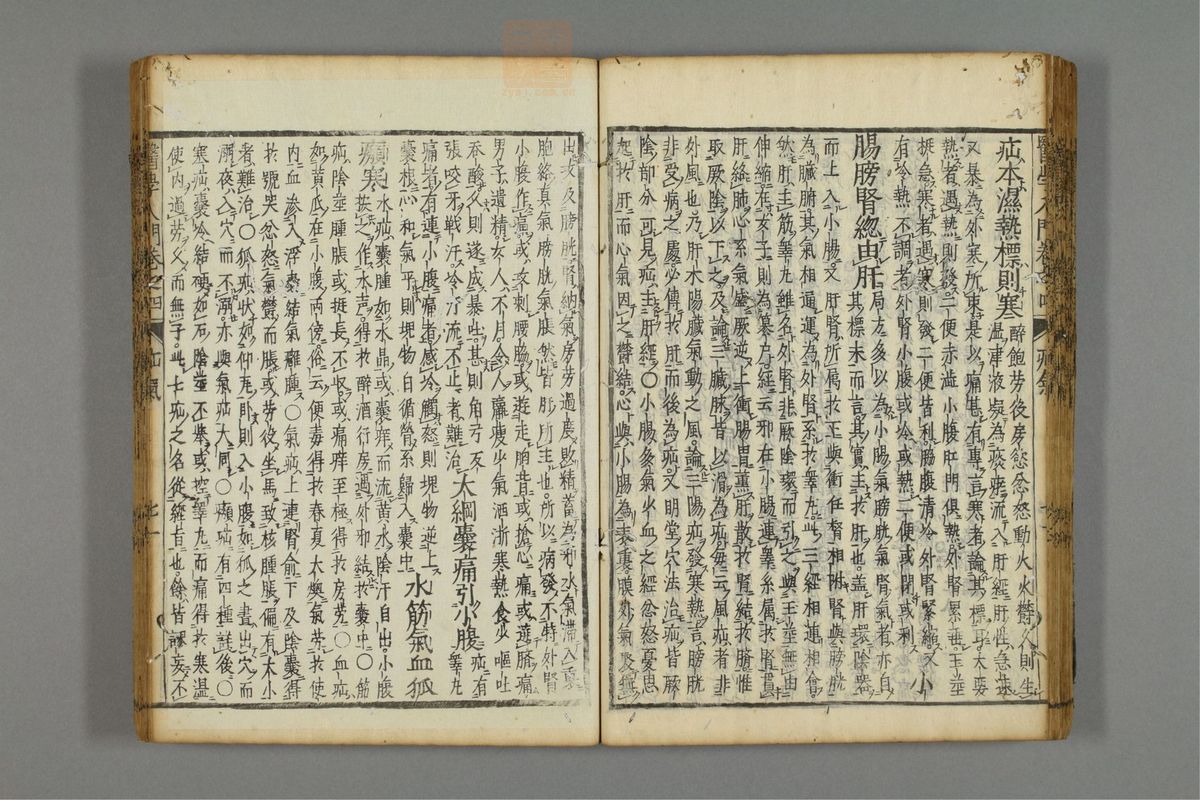 疝本濕熱標則寒 醉飽勞役房慾忿怒動火火鬱久則生
濕津液凝為痰瘀流入肝經肝性急速
又暴為外寒所束是以痛甚有專言寒者論其標耳大要
熱者遇熱則發二便赤澁小腹肛門俱熱外腎累垂玉莖
挺急寒者遇寒則發二便皆利胸腹清冷外腎緊縮
有冷熱不調者外腎小腹或冷或熱二便或閉或利 小
腸膀腎總由肝 局方多以為小腸氣膀胱氣腎氣者亦自
其標末而言其實主於肝也盖肝環陰器
而上入小腹
肝腎所屬於王與衝任督相附腎與膀胱
為臟腑其氣相通運為外腎系於睾丸此三經相連相會
然肝主筋睾丸雖名外腎非厥陰環而引之與玉莖無由
伸縮在女子則為篡戶經云邪在小腸連睾系屬於腎貫
肝絡肺心系氣盛厥逆上衝腸胃薰肝散於肓結於臍惟
取厥陰以下之及論三臟脉皆以滑為疝每云風疝者非
外風也乃肝木陽臟氣動之風論三陽疝發寒熱言膀胱
非受病之處必傳於肝而後為疝又明堂穴法治疝皆厥
陰部分可見疝主肝經〇小腸多氣少血之經忿怒憂思
起於肝而心氣因之鬱結心與小腸為表裏
膀胱腎納氣房勞過度敗精蓄為邪水氣滯入裏
胞絡真氣膀胱氣脹然皆肝所主也所以病發不特外腎
小腹作痛或攻刺腰脇或遊走胸背或搶心痛或遶臍痛
男子遺精女人不月令人羸瘦少氣洒淅寒熱食少嘔吐
吞酸久則遂成暴吐甚則角弓反
張咬牙戰汗冷汗流不止者難治 大綱囊痛引小腹 疝有
睾丸
痛者有連小腹痛者感冷觸怒則塊物逆上
囊根心和氣平則塊物自循縈系歸入囊中 水筋氣血狐
㿗寒 水疝囊腫如水晶或囊痒而流黃水陰汗自出小腹
按之作水聲得於醉酒行房遇外邪結於囊中〇筋
疝陰莖腫脹或挺長不收或痛痒至極得於房勞〇血疝
如黃瓜在小腹兩傍俗云便毒得於春夏大燠氣勞於使
內血滲入浮囊結氣癰腫〇氣疝上連腎俞下及陰囊得
於號哭忿怒氣鬱而脹或勞役坐馬致核腫脹偏有大小
者難治〇狐疝狀如仰瓦臥則入小腹如狐之晝出穴而
溺夜入穴而不溺亦與氣疝大同〇㿗疝有四種詳後〇
寒疝囊冷結硬如石陰莖不舉或控睾丸而痛得於寒濕
使內過勞久而無子此七疝之名從經有也餘皆謬妄不
醫學入門卷之四
疝氣